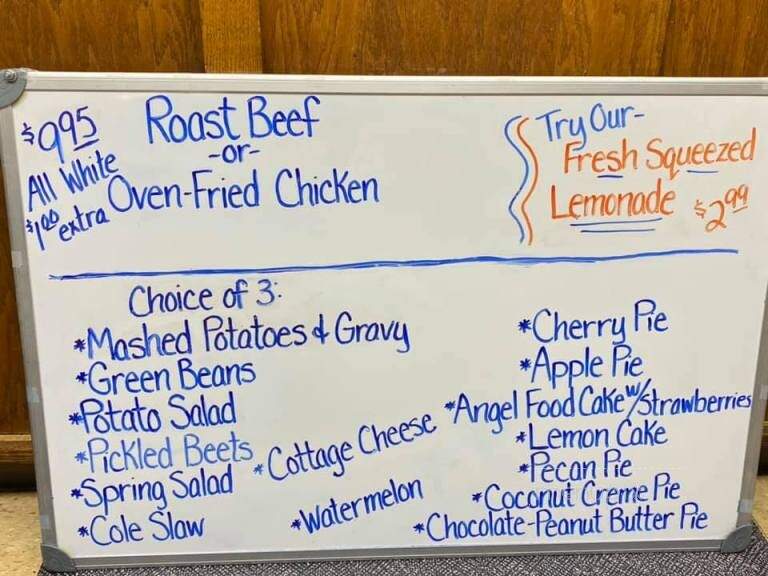 $9.95
All White
$1.00 extra
Roast Beef
-or-
Oven-Fried Chicken
Try Our-
Fresh Squeezed
Lemonade $2.99
Choice of 3:
*Mashed Potatoes & Gravy
*Green Beans
*Potato Salad
*Pickled Beets
*Spring Salad
*Cole Slaw
*Cottage Cheese
*Watermelon
*Cherry Pie
*Apple Pie
*Angel Food Cake w/Strawberries
*Lemon Cake
*Pecan Pie
*Coconut Creme Pie
*Chocolate-Peanut Butter Pie